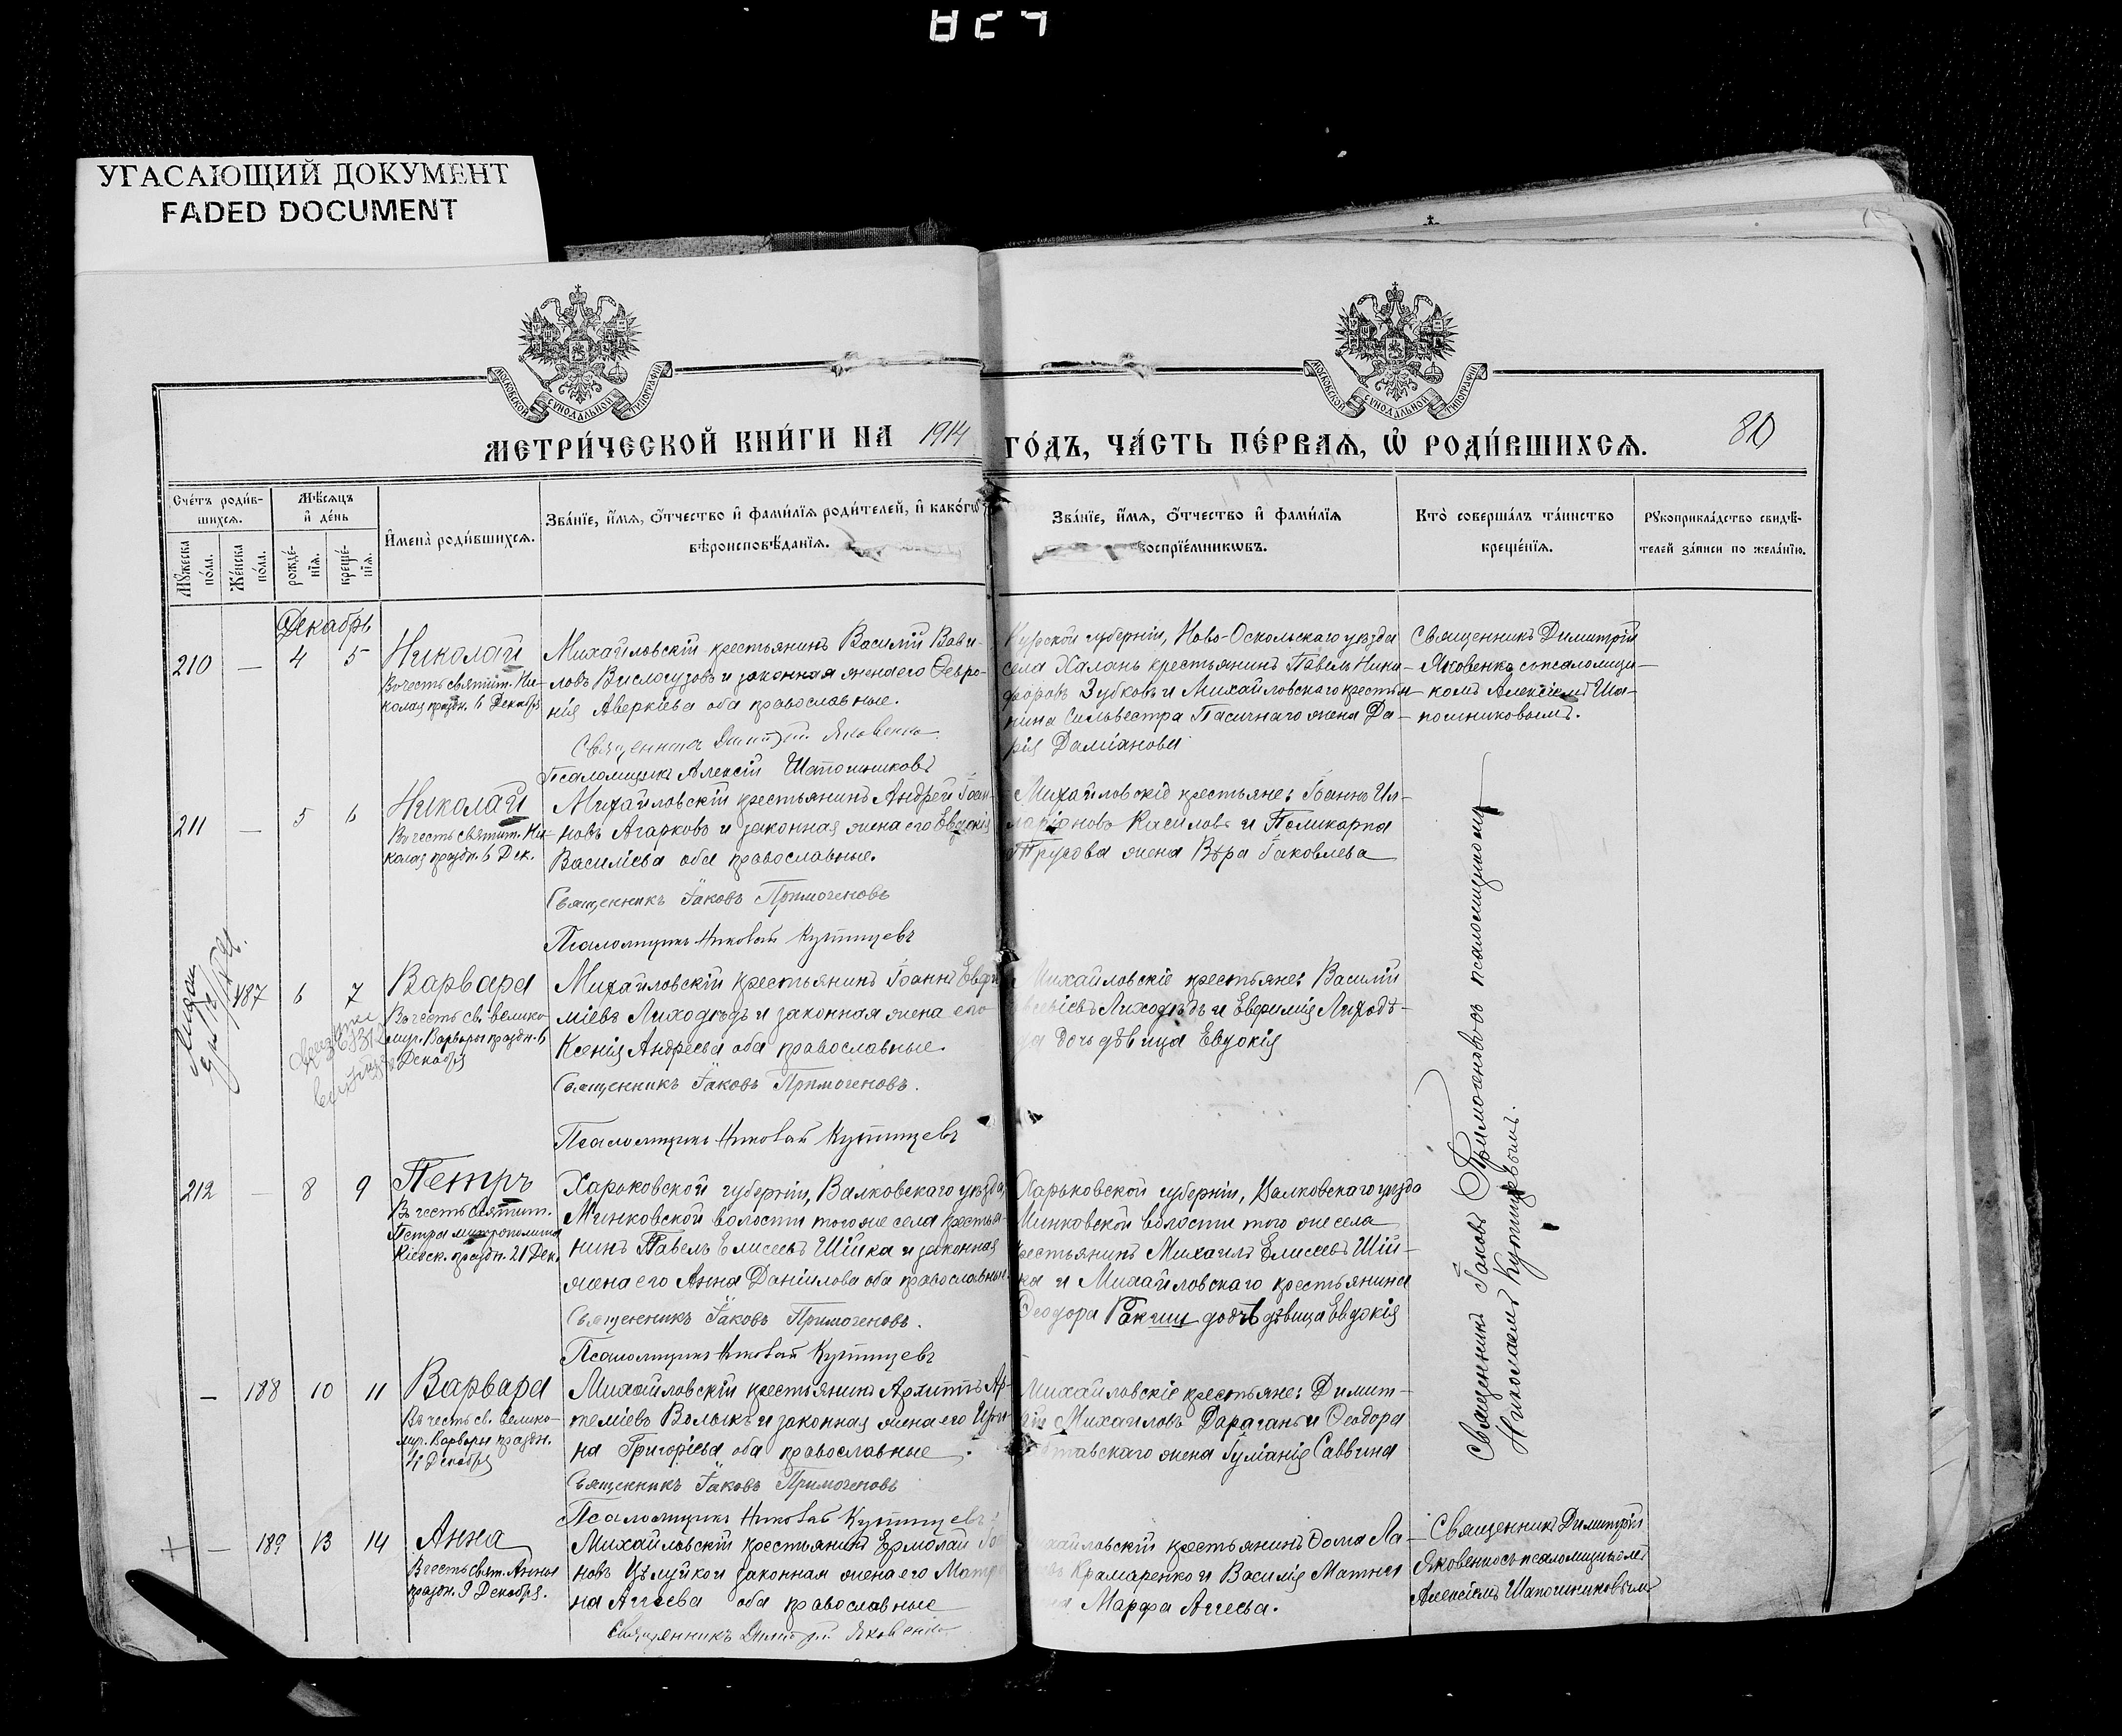 УГАСАЮЩИЙ ДОКУМЕНТ
FADED DOCUMENT
МОСКОВСКОЙ СѴНОДАЛЬНОЙ ТИПОГРАФІИ
МОСКОВСКОЙ СѴНОДАЛЬНОЙ ТИПОГРАФІИ
МЕТРИ́ЧЕСКОЙ КНИ́ГИ НА 1914 ГО́ДЪ, ЧА́СТЬ ПЕ́РВАѦ, Ѡ҆ РОДИ́ВШИХСѦ.
80
Сче́тъ роди́в-
шихсѧ.
Мѣ́сѧцъ
и҆ де́нь
Мꙋ́жеска
по́ла.
Же́нска
по́ла.
рожде́-
нїѧ.
креще́-
нїѧ.
И҆мена̀ роди́вшихсѧ.
Зва́нїе, и҆́мѧ, ѻ҆́тчество и҆ фами́лїѧ роди́телей, и҆ како́гѡ
вѣроисповѣ́данїѧ.
Зва́нїе, и҆́мѧ, ѻ҆́тчество и҆ фами́лїѧ
воспрїе́мникѡвъ.
Кто̀ соверша́лъ та́инство
креще́нїѧ.
Рꙋкоприкла́дство свидѣ́-
телей за́писи по жела́нїю.
Декабрь
210 — 4 5
Николай
Въ честь святит. Ни-
колая праздн. 6 Декабря
Михайловскій крестьянинъ Василій Вави-
ловъ Вислогузовъ и законная жена его Февро-
нія Аверкіева оба православные.
Священникъ Димитрій Яковенко
Псаломщикъ Алексій Шапошниковъ
Курской губерніи, Ново-Оскольскаго уѣзда
села Халань крестьянинъ Павелъ Ники-
форовъ Зубковъ и Михайловскаго крестья-
нина Сильвестра Пасичнаго жена Да-
рія Даміанова
Священникъ Димитрій
Яковенко съ псаломщи-
комъ Алексіемъ Ша-
пошниковымъ.
211 — 5 6
Николай
Въ честь святит. Ни-
колая праздн. 6 Дек.
Михайловскій крестьянинъ Андрей Іоан-
новъ Агарковъ и законная жена его Евдокія
Василіева оба православные.
Священникъ Іаковъ Примогеновъ
Псаломщикъ Николай Купицевъ
Михайловскіе крестьяне: Іоаннъ Ил-
ларіоновъ Касиловъ и Поликарпа
Трусова жена Вѣра Іаковлева
187 6 7
Варвара
Въ честь св. велико-
муч. Варвары праздн. 6
Декабря
Михайловскій крестьянинъ Іоаннъ Евфи-
міевъ Лиходѣдъ и законная жена его
Ксенія Андреева оба православные.
Священникъ Іаковъ Примогеновъ.
Псаломщикъ Николай Купицевъ
Михайловскіе крестьяне: Василій
Лиходѣдъ и Евфимія Лиходѣ-
да дочь дѣвица Евдокія
Священникъ Іаковъ Примогеновъ съ псаломщикомъ
Николаемъ Купицевымъ.
212 — 8 9
Петръ
Въ честь святит.
Петра митрополита
Кіевск. праздн. 21 Дек.
Харьковской губерніи, Валковскаго уѣзда,
Минковской волости того же села крестья-
нинъ Павелъ Елисеевъ Шійка и законная
жена его Анна Даніилова оба православные.
Священникъ Іаковъ Примогеновъ.
Псаломщикъ Николай Купицевъ
Харьковской губерніи, Валковскаго уѣзда
Минковской волости того же села
крестьянинъ Михаилъ Елисеевъ Шій-
ка и Михайловскаго крестьянина
Ѳеодора Ракши дочь дѣвица Евдокія
— 188 10 11
Варвара
Въ честь св. велико-
муч. Варвары праздн.
4 Декабря
Михайловскій крестьянинъ Архиппъ Ар-
теміевъ Волыкъ и законная жена его Ири-
на Григоріева оба православные.
Священникъ Іаковъ Примогеновъ
Псаломщикъ Николай Купицевъ
Михайловскіе крестьяне: Димит-
рій Михаиловъ Дараганъ и Ѳеодора
жена Іуліанія Саввина
— 189 13 14
Анна
В честь свят. Анны
праздн. 9 Декабря.
Михайловскій крестьянинъ Ермолай Іоан-
новъ Цѣлуйко и законная жена его Матро-
на Аггеева оба православные
Священникъ Димитрій Яковенко
Михайловскій крестьянинъ Ѳома Ла-
Крамаренко и Василія Матня
Марфа Аггеева.
Священникъ Димитрій
Яковенко съ псаломщикомъ
Алексіемъ Шапошниковымъ